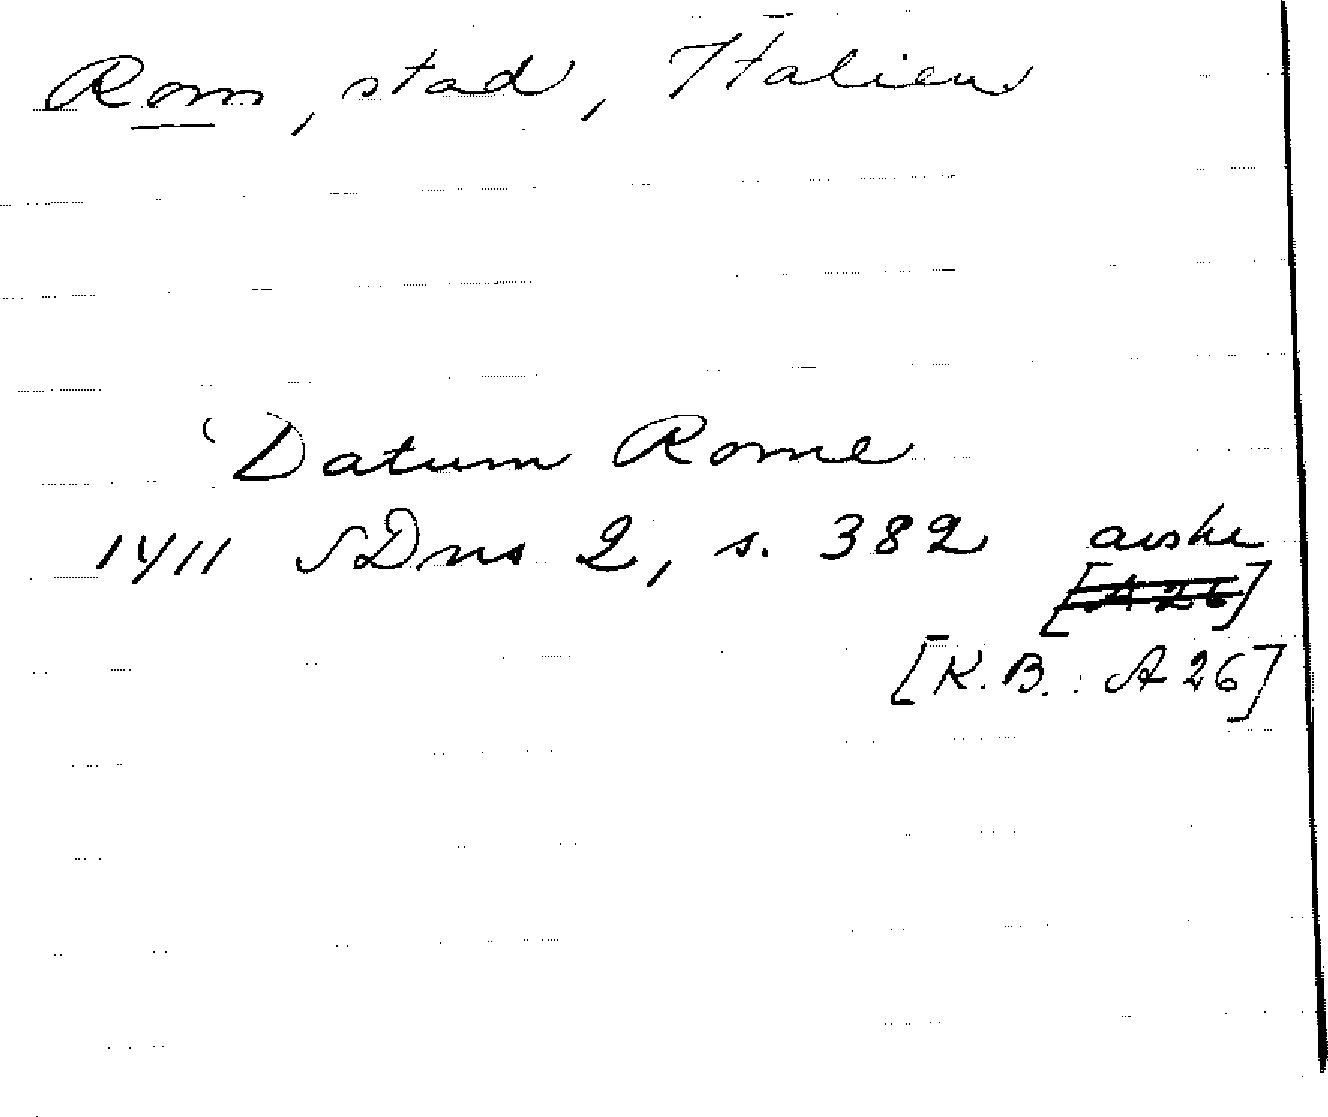 Rom, stad, Italien
Datum Rome
1411 SDns 2, s. 382 avskr
[A 26]
[K.B.: A 26]